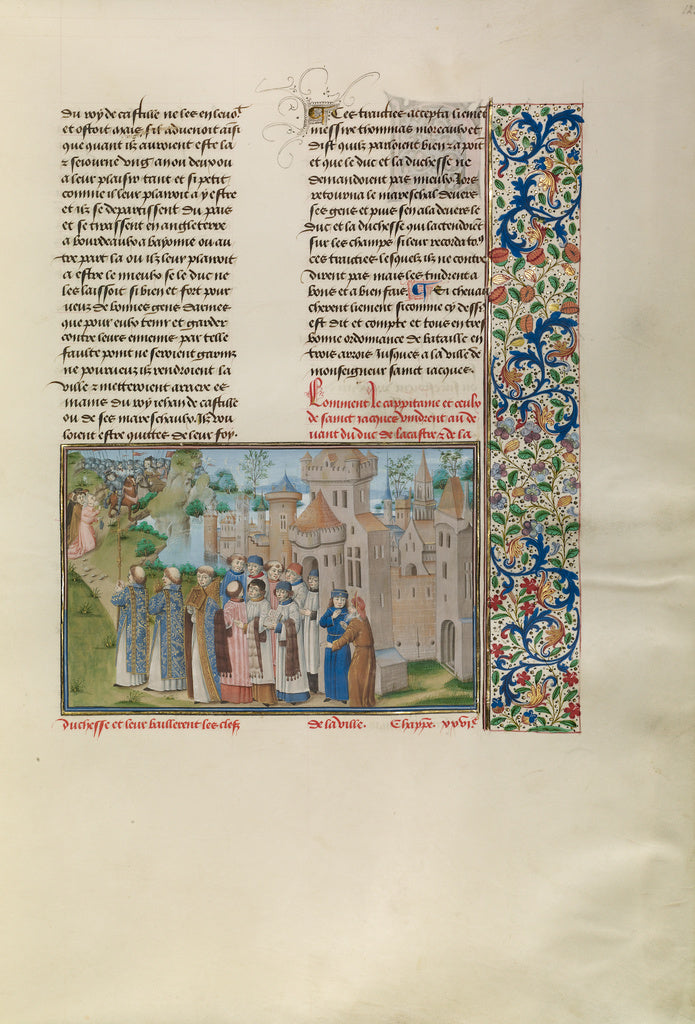 du roy de castille ne les en levoit
et ostoit mais sil advenoit ainsi
que quant ilz auroient este la
z seiourne ung an on deux ou
a leur plaisir tant et si petit
comme il leur plairoit a y estre
et ilz se departissent du pais
et se traissent en angleterre
a bourdeaulx a bayonne ou au
tre part la ou il leur plairoit
a estre le mieulx se le duc ne
les laissoit si bien et fort pour
veuz de bonnes gens darmes
que pour eulx tenir et garder
contre leurs ennemis par telle
faulte point ne seroient garniz
ne pourveuz ilz rendroient la
ville z metteroient arriere es
mains du roy iehan de castille
ou de ses mareschaulx. Ilz vou
loient estre quittes de leur foy.
Ces traities accepta liement
messire thommas moreaulx et
dist quilz parloient bien z a point
et que le duc et la duchesse ne
demandoient pas mieulx. Lors
retourna le mareschal devers
ses gens et puis sen ala devers le
duc et la duchesse qui lattendoient
sur les champs si leur recorda tous
ces traities lesquelz ilz ne contre
dirent pas mais les tindrent a
bons et a bien fais. Si chevau
cherent liement si comme cy dessus
est dit et compte et tous en tres
bonne ordonnance de bataille en
trois arrois iusques a la ville de
monseigneur sainct iacques.
Comment le cappitaine et ceulx
de sainct iacques vindrent au de
vant du duc de lacastre z de la
duchesse et leur baillerent les clefz
de la ville. Chappe. xxvie